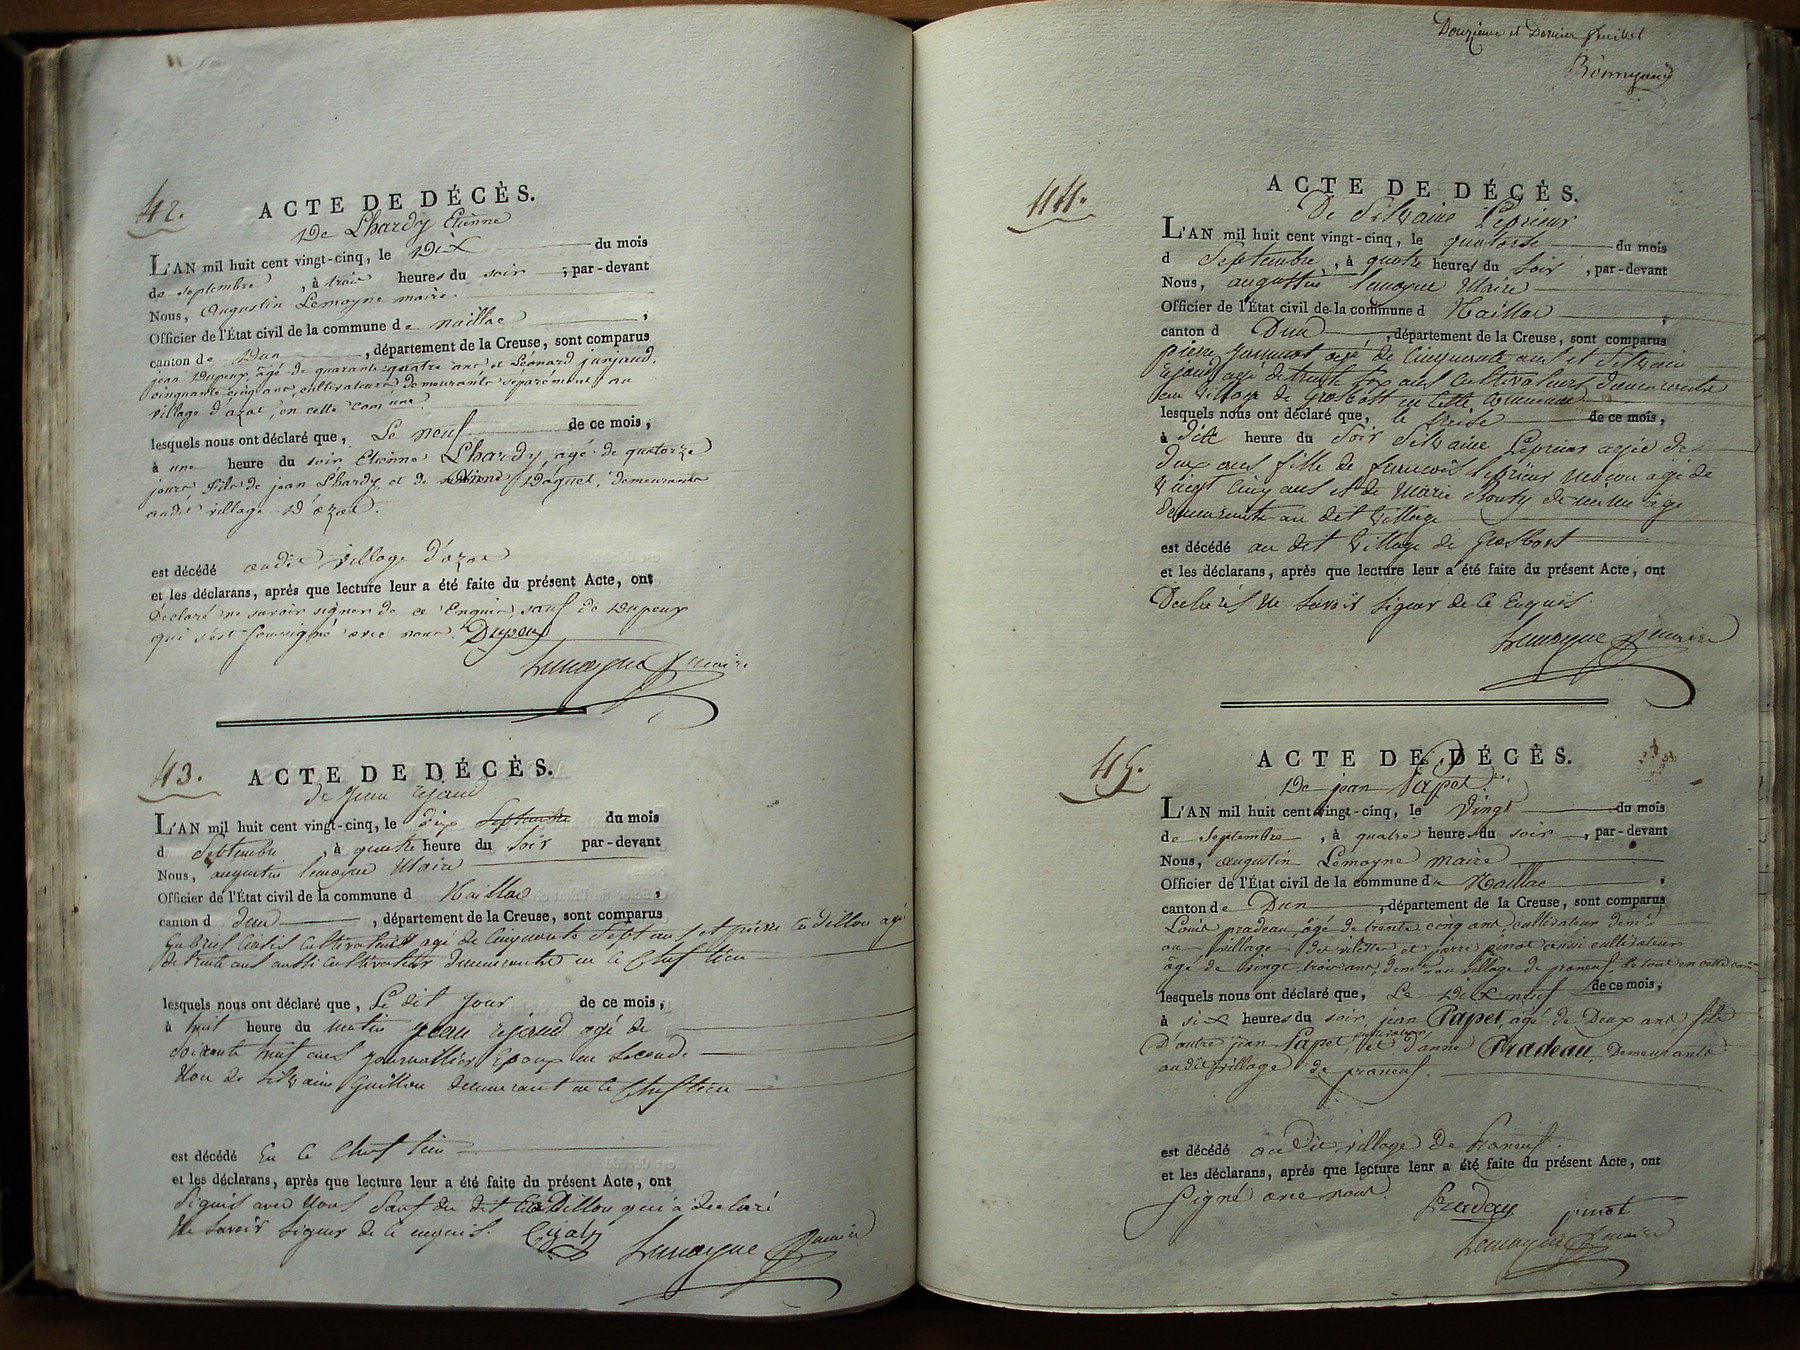 42.
ACTE DE DÉCÈS.
De Lhardy Etienne
L'AN mil huit cent vingt-cinq, le Dix du mois
de septembre, à trois heures du soir, par-devant
Nous, Augustin Lemoyne maire.
Officier de l'État civil de la commune de naillac,
canton de Dun, département de la Creuse, sont comparus
jean Dupeux, âgé de quarante quatre ans et Léonard junjaud,
cinquante cinq ans, cultivateurs demeurants séparément au
village d'azat, en cette commune
lesquels nous ont déclaré que, Le neuf de ce mois,
à une heure du soir Etienne Lhardy, agé de quatorze
jours fils de jean Lhardy et de Daguet, demeurants
audit village d'azat.
est décédé audit village d'azat
et les déclarans, après que lecture leur a été faite du présent Acte, ont
Déclaré ne savoir signer de ce Enquis sauf de Dupeux
qui s'est soussigné avec nous. Dupeux
Lemoyne maire
43.
ACTE DE DÉCÈS.
de Jean rejaud
L'AN mil huit cent vingt-cinq, le dix septembre du mois
d Septembre, à quatre heure du soir par-devant
Nous, augustin lemoyne Maire
Officier de l'État civil de la commune d Naillac,
canton d dun, département de la Creuse, sont comparus
Gabriel cultivateur agé de Cinquante Sept ans et pierre Cadillou agé
de trente ans aussi cultivateur demeurants en ce Chef lieu
lesquels nous ont déclaré que, Le dit Jour de ce mois,
à huit heure du matin Jean rejaud agé de
soixante huit ans journallier Epoux en seconde
de silvaine Guillou demeurant en ce Chef lieu
est décédé En ce Chef lieu
et les déclarans, après que lecture leur a été faite du présent Acte, ont
Signés avec Nous Sauf du dit Cadillou qui à declaré
Ne savoir signer de ce enquis.
Lemoyne maire
Douzieme et Dernier feuillet
44.
ACTE DE DÉCÈS.
De Silvaine Leprieur
L'AN mil huit cent vingt-cinq, le quatorse du mois
d Septembre, à quatre heures du Soir, par-devant
Nous, augustin lemoyne Maire
Officier de l'État civil de la commune d Naillac,
canton d Dun, département de la Creuse, sont comparus
pierre agé de Cinquante ans et Silvain
rejaud agé de trente six ans cultivateurs demeurants
au village de Grosbost en cette commune
lesquels nous ont déclaré que, le treise de ce mois,
à dix heure du Soir Silvaine Leprieur agée de
deux ans fille de francois leprieur Macon agé de
Vingt cinq ans et de Marie de même âge
demeurants au dit village
est décédé au dit village de Grosbost
et les déclarans, après que lecture leur a été faite du présent Acte, ont
Declarés Ne savoir signer de ce Enquis.
Lemoyne maire
45.
ACTE DE DÉCÈS.
De jean Papet.
L'AN mil huit cent vingt-cinq, le Vingt du mois
de Septembre, à quatre heures du soir, par-devant
Nous, augustin Lemoyne maire
Officier de l'État civil de la commune de Naillac,
canton de Dun, département de la Creuse, sont comparus
Louis pradeau, âgé de trente cinq ans, cultivateur demt
au village des vilette et pierre pinot aussi cultivateur
âgé de vingt trois ans, demt au village de praneuf, le tout en cette comne
lesquels nous ont déclaré que, Le Dix neuf de ce mois,
à six heures du soir jean Papet, agé de Deux ans, fils
D'autre jean Papet, cultivateur et d'anne Pradeau, demeurants
audit village de praneuf.
est décédé audit village de Praneuf.
et les déclarans, après que lecture leur a été faite du présent Acte, ont
signé avec nous. Pradeau pinot
Lemoyne maire